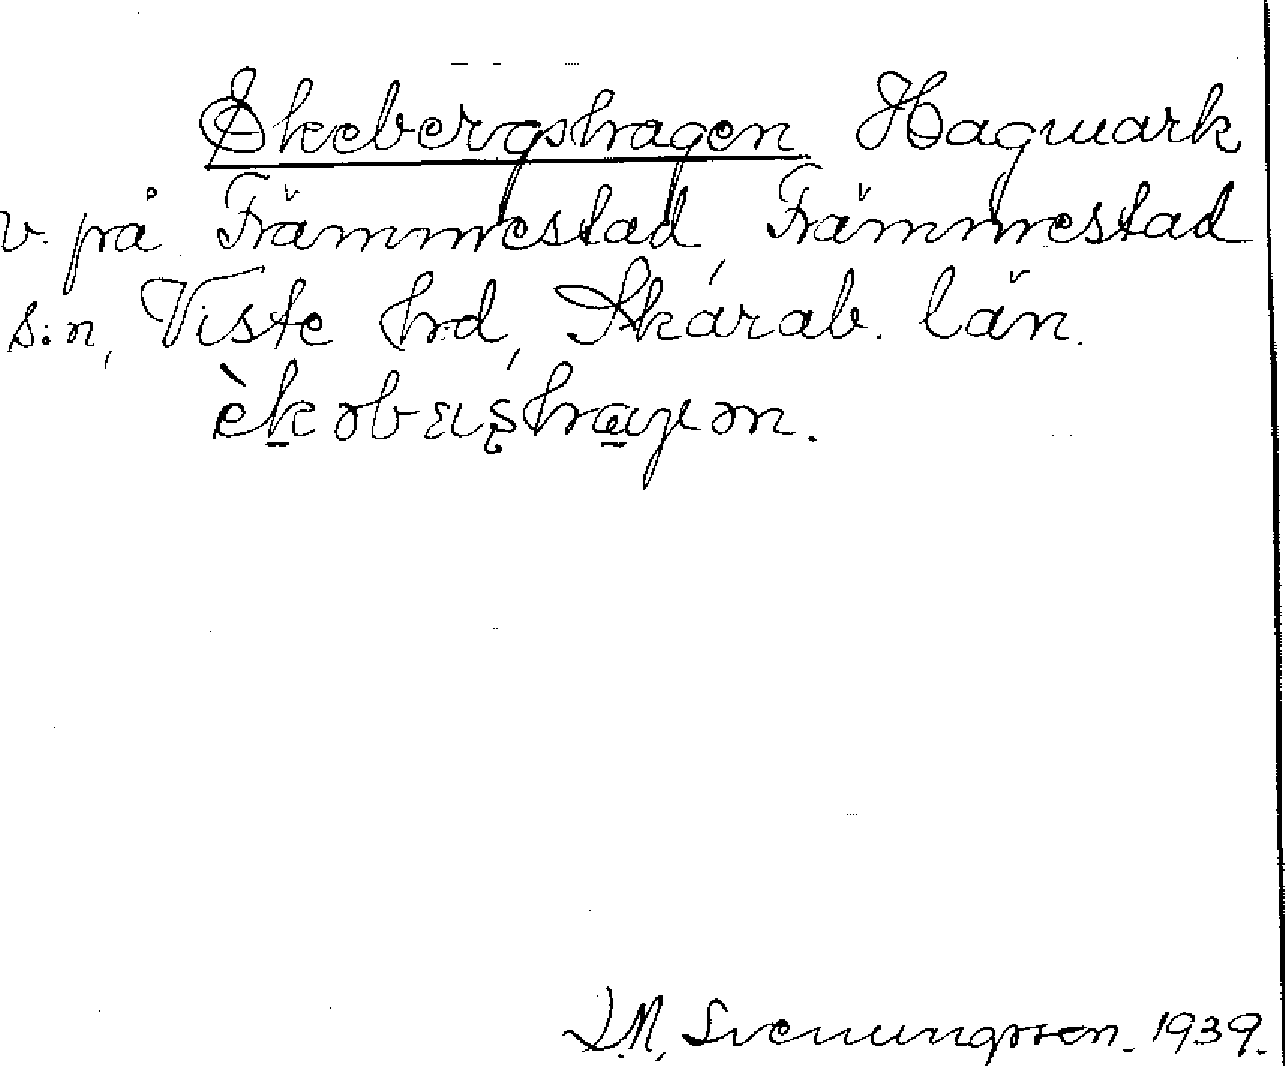 Ekebergshagen Hagmark
v. på Främmestad, Främmestad
s:n, Viste hrd, Skarab. län.
Svenungsson. 1939.